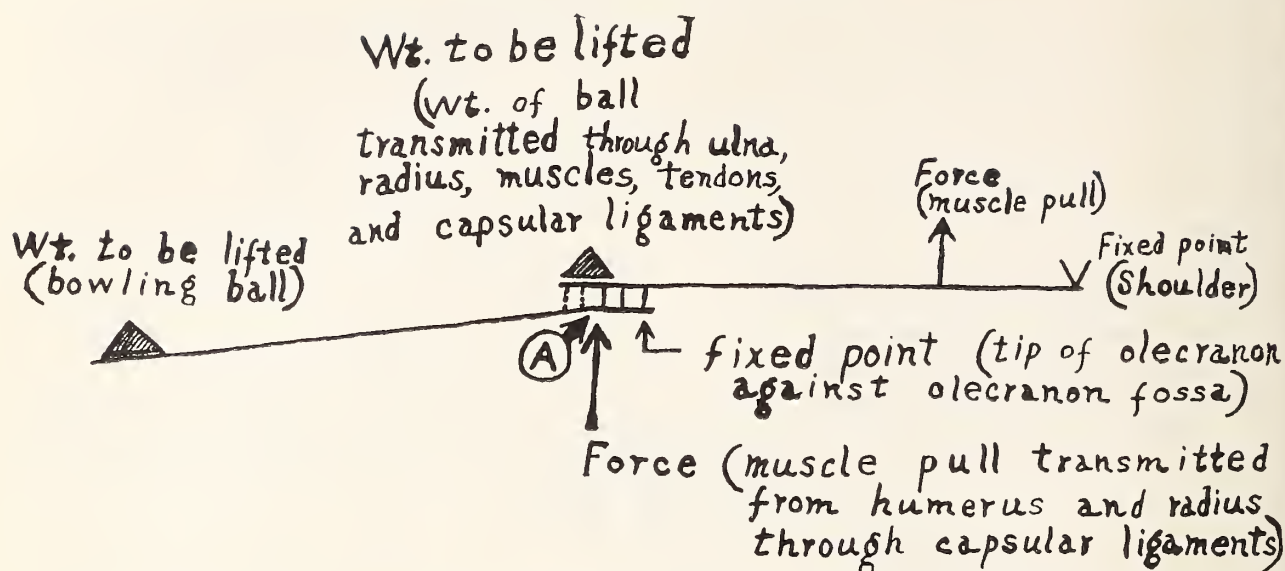 Wt. to be lifted
(wt. of ball
transmitted through ulna,
radius, muscles, tendons,
and capsular ligaments)
Wt. to be lifted
(bowling ball)
Force
(muscle pull)
Fixed point
(Shoulder)
A
fixed point (tip of olecranon
against olecranon fossa)
Force (muscle pull transmitted
from humerus and radius
through capsular ligaments)